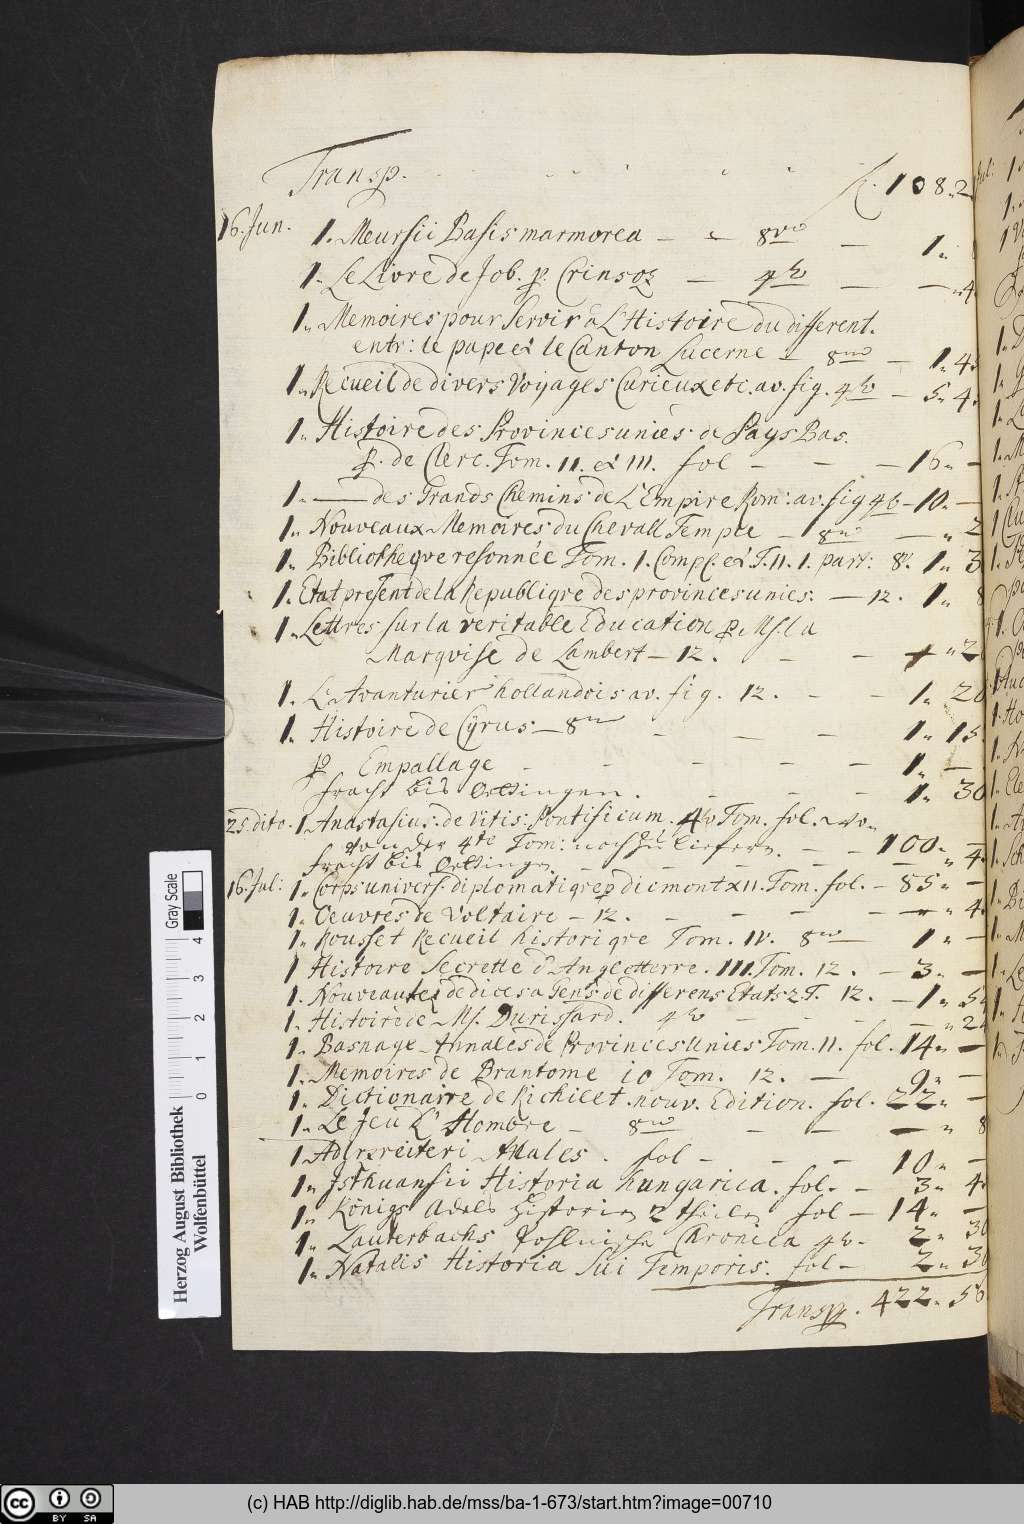 Transp. . . . . . . f. 108.2
16. Jun. 1. Meursii Basis marmorea — 8vo — 1.
1. Le Livre de Job. p. Crinsoz — 4to — — 4
1. Memoires pour servir à L'Histoire du different.
entr: le pape et le Canton Lucerne — 8vo — 1. 4
1. Recueil de divers Voyages Curieux etc. av. fig. 4to — 5. 4
1. Histoire des Provinces unies de Pays Bas.
p. de Clerc. Tom. II. et III. fol — — — 16. —
1. —— des Grands Chemins de L'Empire Rom: av. fig 4to — 10. —
1. Nouveaux Memoires du Chevall Temple — 8vo — 2
1. Bibliotheqve resonnée Tom. 1. Compl. et T. II. 1. part: 8v. 1. 3
1. Etat present de la Republiqve des provinces unies. — 12. 1. 8
1. Lettres sur la veritable Education p. Ms. la
Marqvise de Lambert — 12. — — " 2
1. L'Avanturier hollandois av. fig. 12. — — 1. 20
1. Histoire de Cyrus — 8vo — — — 1. 15
p Empallage — — — — 1. —
fracht bis Oettingen. — — — 1. 30
25. dito. 1 Anastasius. de Vitis Pontificum. 4to Tom. fol. wo-
von der 4te Tom: noch zu liefern. — — 100. —
fracht bis Oettingen. — — — — " 4
16. Jul: 1. Corps univers. diplomatiqve p dumont XII. Tom. fol. — 85. —
1. Oeuvres de Voltaire — 12. — — — — " 4
1. Rousset Recueil historiqve Tom. IV. 8vo — 1. —
1 Histoire Secrette d'Angleterre. III. Tom. 12. — 3. —
1. Nouveautes de dices a Gens de differens Etats 2. T. 12. — 1. 5
1. Histoire de Ms. Durissard. 4to — — — — " 2
1. Basnage Annales de Provinces Unies Tom. II. fol. 14. —
1. Memoires de Brantome 10 Tom. 12. — 9. —
1. Dictionaire de Richilet. nouv. Edition. fol. 22. —
1. Le Jeu L'Hombre — 8vo — — — " 8
1 Adlzreiteri Annales. fol — — — 10. —
1. Isthuansii Historia hungarica. fol. — 3. 4
1. Königs Adels Historie 2 theile fol — 14. —
1. Lauterbachs Pohlnische Chronica 4to. 2. 30
1. Natalis Historia Sui Temporis. fol — 2. 30
Transp. 422. 50
Herzog August Bibliothek
Wolfenbüttel
Gray Scale
0 1 2 3 4
cc BY SA
(c) HAB http://diglib.hab.de/mss/ba-1-673/start.htm?image=00710